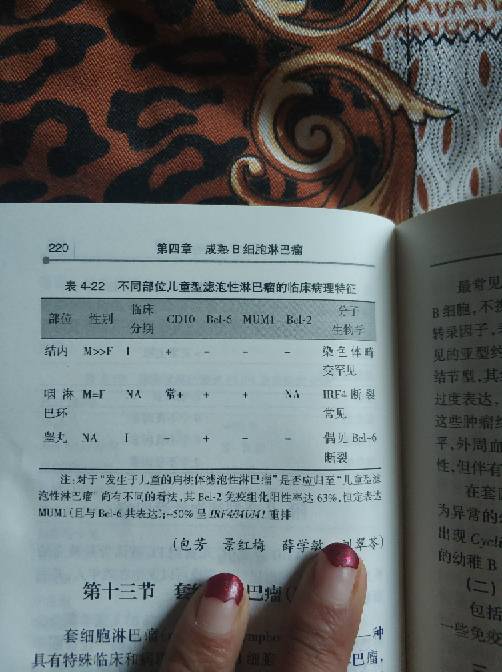 220 第四章 成熟B细胞淋巴瘤
表 4-22 不同部位儿童型滤泡性淋巴瘤的临床病理特征
部位 性别 临床分期 CD10 Bcl-6 MUM1 Bcl-2 分子生物学
结内 M>>F I + - - - 染色体畸变罕见
咽淋巴环 M=F NA 常+ + + NA IRF4 断裂常见
睾丸 NA I - + - - 偶见 Bcl-6 断裂
注:对于“发生于儿童的扁桃体滤泡性淋巴瘤”是否应归至“儿童型
滤泡性淋巴瘤”尚有不同的看法,其 Bcl-2 免疫组化阳性率达 63%,恒定表达
MUM1(且与 Bcl-6 共表达);~50% 呈 重排
(包芳 景红梅 薛学敏 翠芬)
第十三节 套 巴瘤
套细胞淋巴瘤 种
具有特殊临床和病
最常见
B 细胞,不
转录因子,
见的亚型
结节型,其
过度表达,
这些肿瘤
平,外周血
性,但伴有
在套
为异常的
出现 Cycl
的幼稚 B
(二)
包括
一些免疫